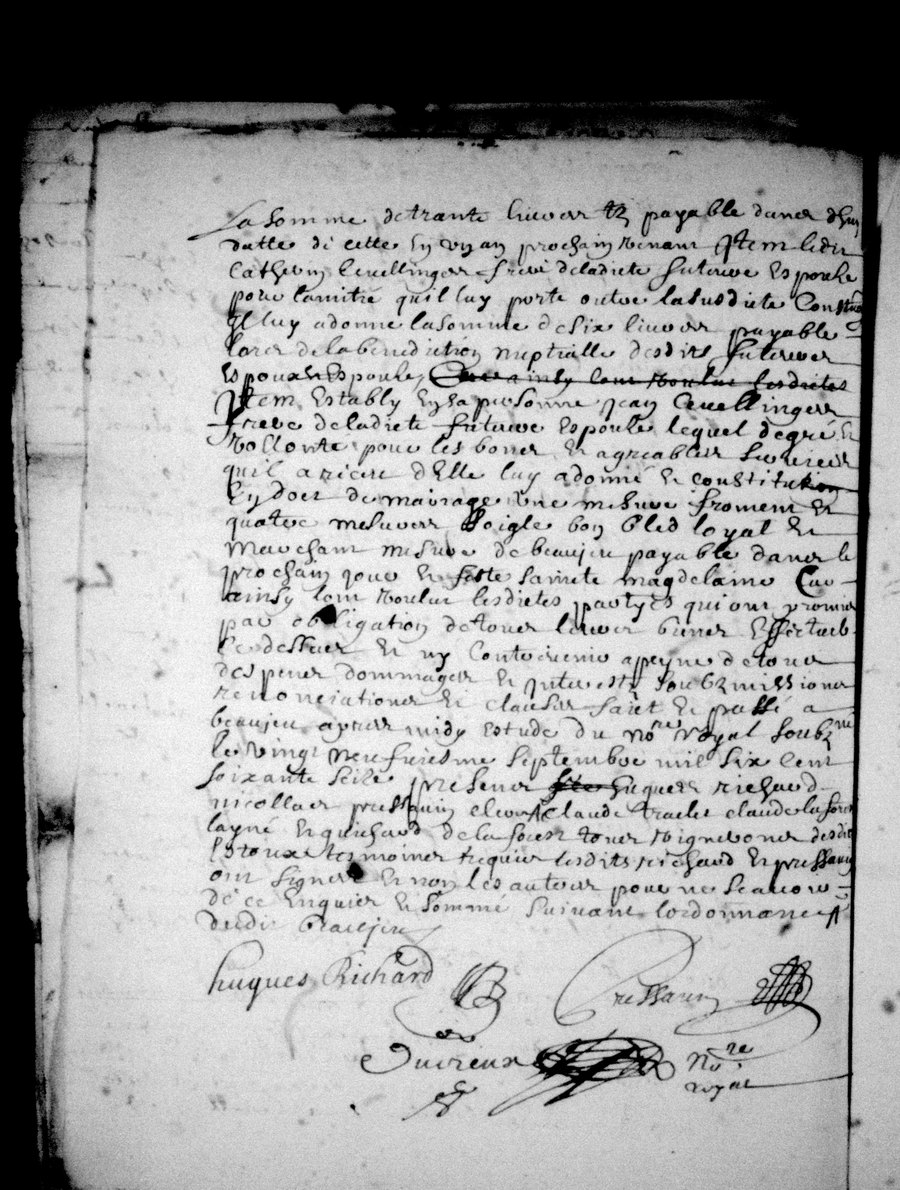 La somme de trante livres tz payable dans dhuy
datte de cette en un an prochain venant Item ledit
Catherin Cevellinger frere de ladicte future espouse
pour lamitié quil luy porte outre la susdicte Constitu
Il luy a donne la somme de six livres payable
lors de la benediction nuptialle desdits futures
espoux et espouse, Car ainsy lont voulus lesdictes
Item Estably en sa personne Jean Cevellinger
frere de ladicte future espouse lequel de gré et
vollonte pour les bons et agreables services
quil a receu d'Elle luy a donné et constitué
en doct de mariage une mesure froment et
quatre mesures soigle bon bled loyal et
marchant mesure de beaujeu payable dans le
prochain jour et feste saincte magdelaine Car
ainsy lont voulus lesdictes partyes qui ont promis
par obligation de tous leurs biens Effectuer
le dessus et ny Contrevenir a peyne de tous
despens dommages et Interestz soubzmissions
renonciations et clauses faict et passé a
beaujeu apres midy estude du nore royal soubzne
le vingt neufiesme septembre mil six cent
soixante seize presens hugues richard
nicollas pressavin clerc Claude traclet claude laforest
layné et guichard de laforest tous vignerons desdits
Estoux tesmoins requis lesdits richard et pressavin
ont signes et non les autres pour ne scavoir
de ce enquis et sommé suivant lordonnance
dudit beaujeu
hugues Richard
Pressavin
Duvieux
Nore
royal